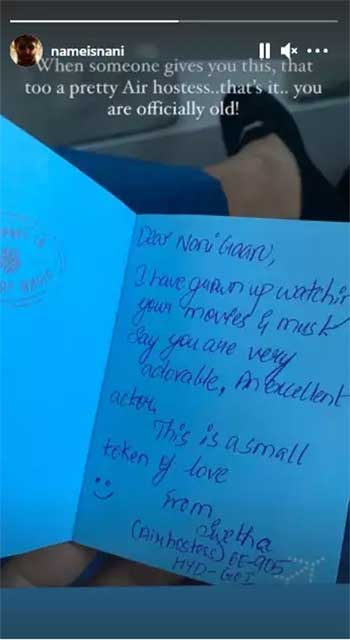 nameisnani
When someone gives you this, that
too a pretty Air hostess..that's it.. you
are officially old!
Dear Nani Gaaru,
I have grown up watchin
your movies & must
Say you are very
adorable, An excellent
actor.
This is a small
token of love
From
Swetha
(Airhostess) 6E-905
HYD-GOI